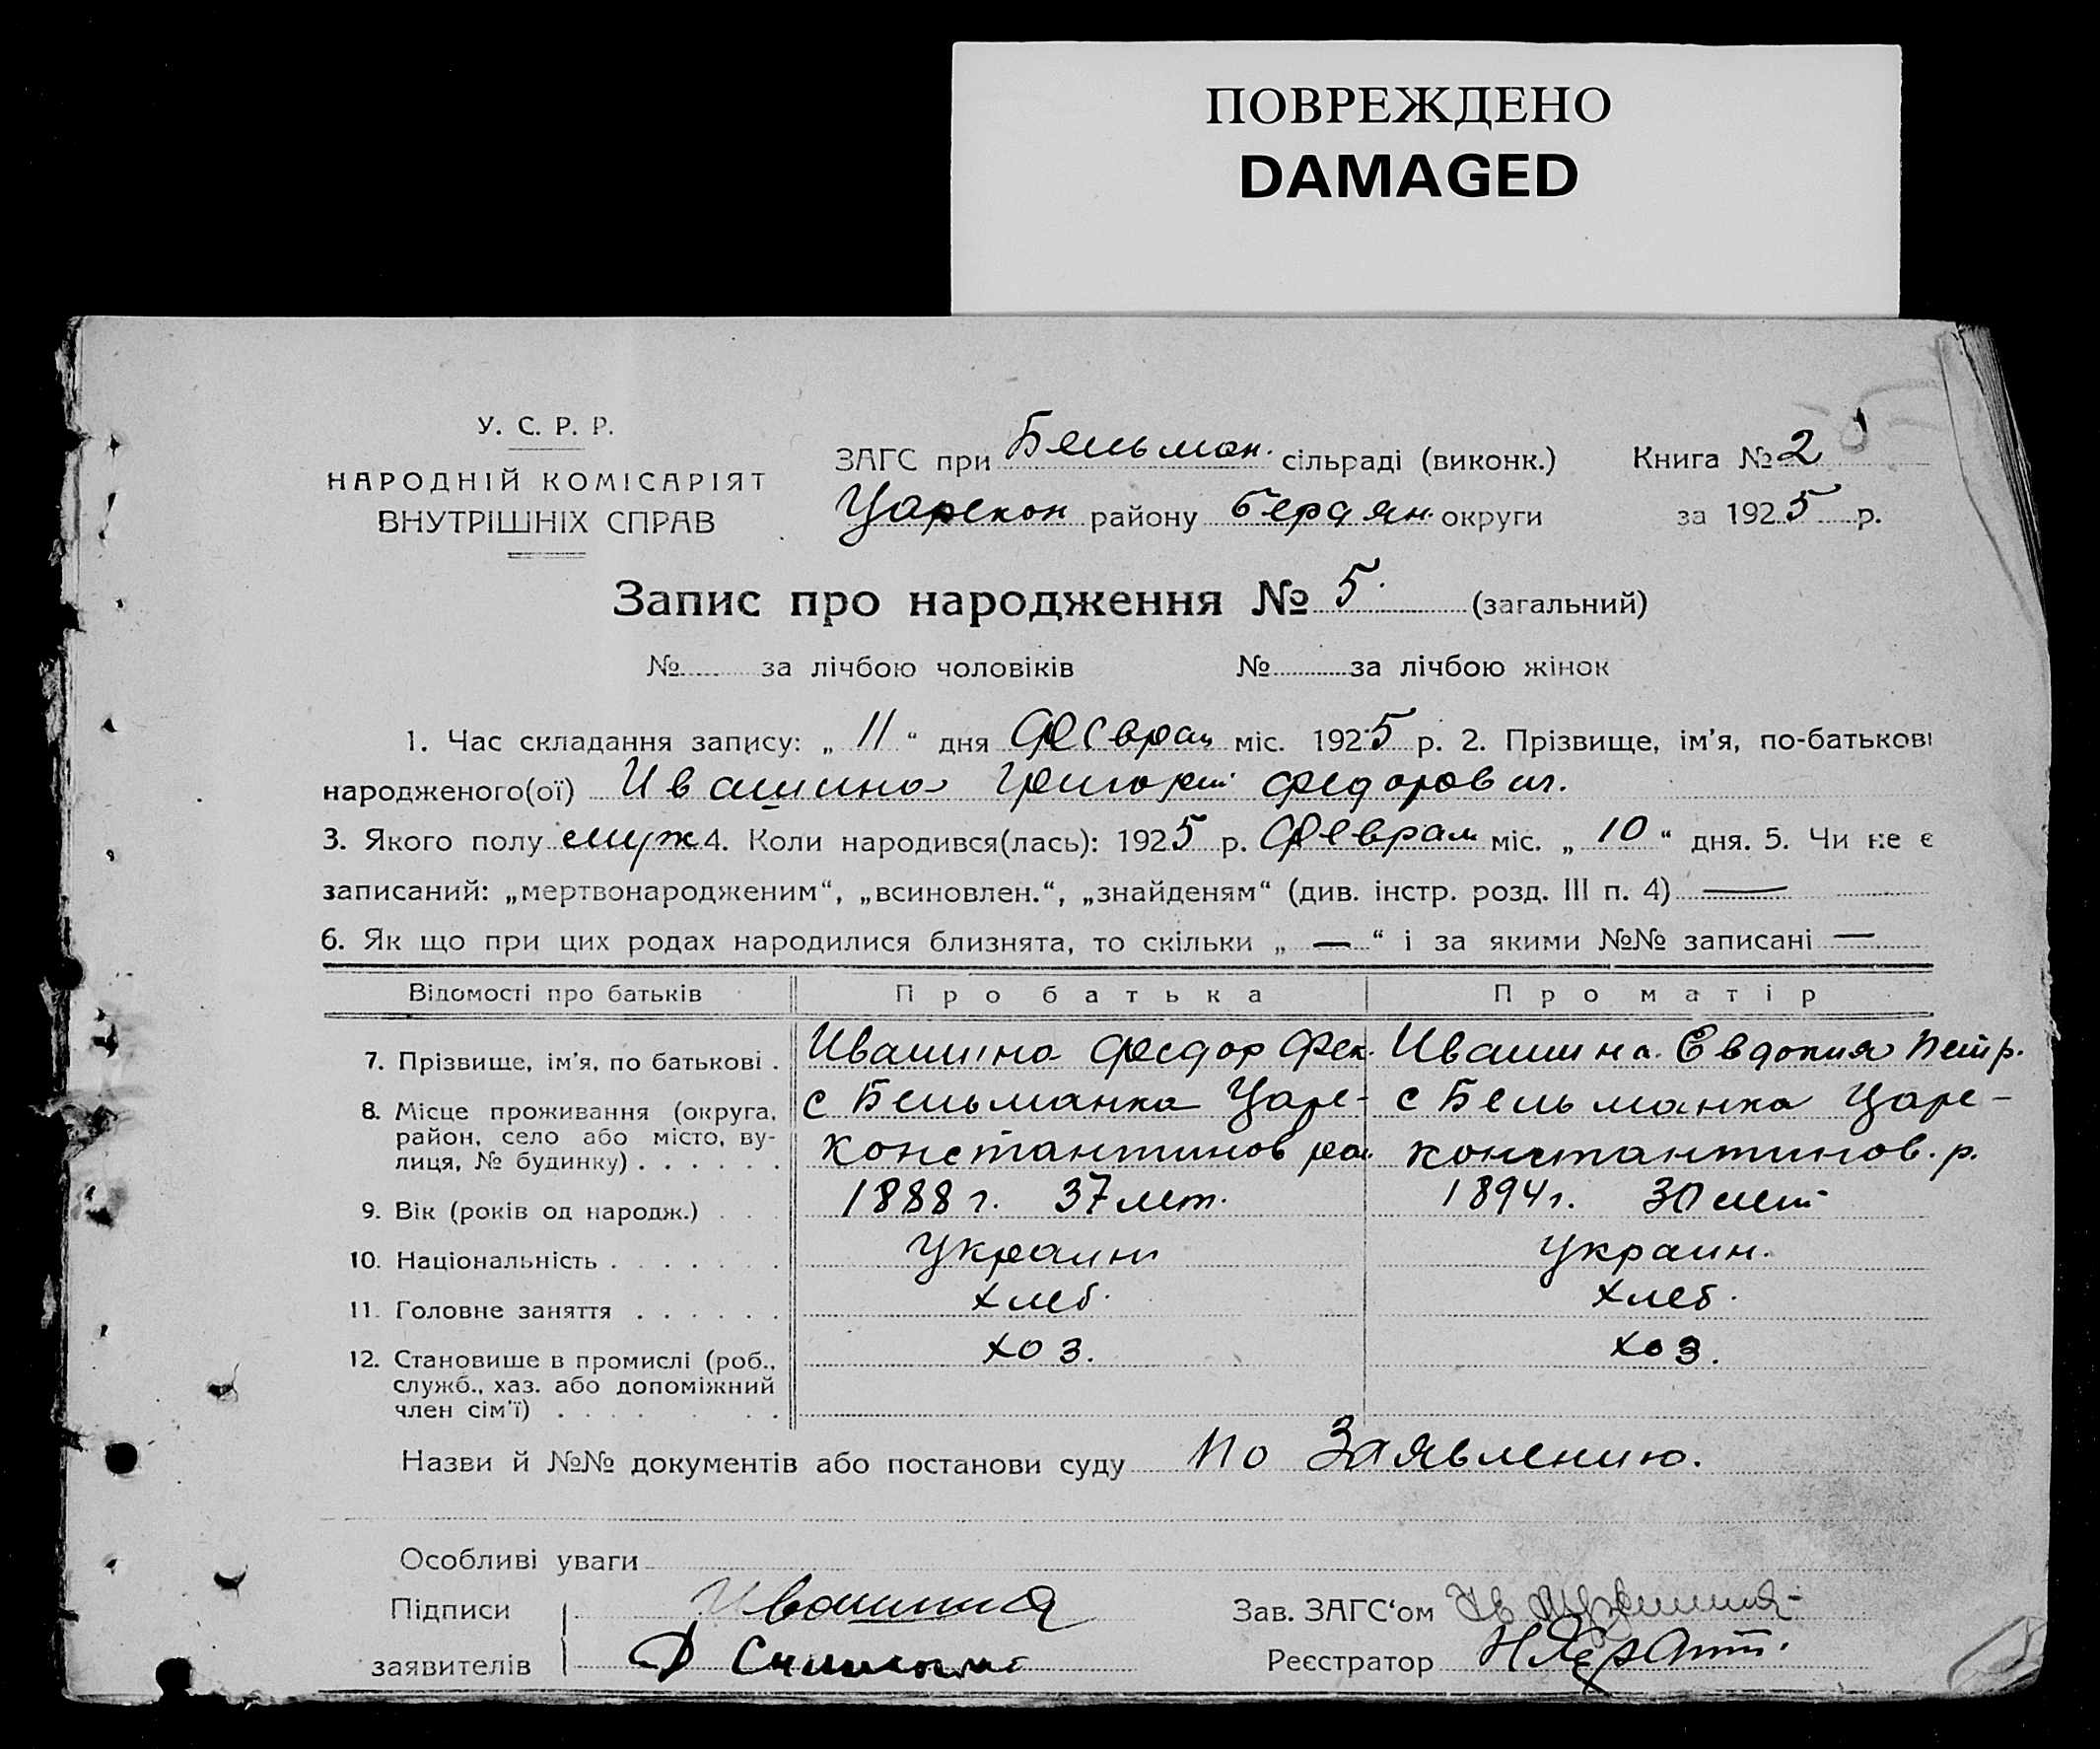 ПОВРЕЖДЕНО
DAMAGED
У. С. Р. Р.
НАРОДНІЙ КОМІСАРІЯТ
ВНУТРІШНІХ СПРАВ
ЗАГС при Бельман. сільраді (виконк.) Книга № 2
Царекон району Бердян. округи за 1925 р.
Запис про народження № 5. (загальний)
№ за лічбою чоловіків № за лічбою жінок
1. Час складання запису: „ 11 “ дня Феврал міс. 1925 р. 2. Прізвище, ім'я, по-батькові
народженого(ої) Ивашина Григорий Федорович.
3. Якого полу муж 4. Коли народився(лась): 1925 р. Феврал міс. „ 10 “ дня. 5. Чи не є
записаний: „мертвонародженим“, „всиновлен.“, „знайденям“ (див. інстр. розд. III п. 4) —
6. Як що при цих родах народилися близнята, то скільки „ — “ і за якими №№ записані —
Відомості про батьків Про батька Про матір
7. Прізвище, ім'я, по батькові . Ивашина Федор Фек. Ивашина Евдокия Петр.
8. Місце проживання (округа, район, село або місто, вулиця, № будинку) . . . . . . с Бельманка Царе- с Бельманка Царе-
Константинов константинов. р.
9. Вік (років од народж.) . . . 1888 г. 37 лет. 1894 г. 30 лет
10. Національність . . . . . . . Украин Украин.
11. Головне заняття . . . . . . Хлеб. Хлеб.
12. Становище в промислі (роб., служб., хаз. або допоміжний член сім'ї) . . . . . . хоз. хоз.
Назви й №№ документів або постанови суду По Заявлению.
Особливі уваги
Підписи Ивашина Зав. ЗАГС‘ом
заявителів Реєстратор